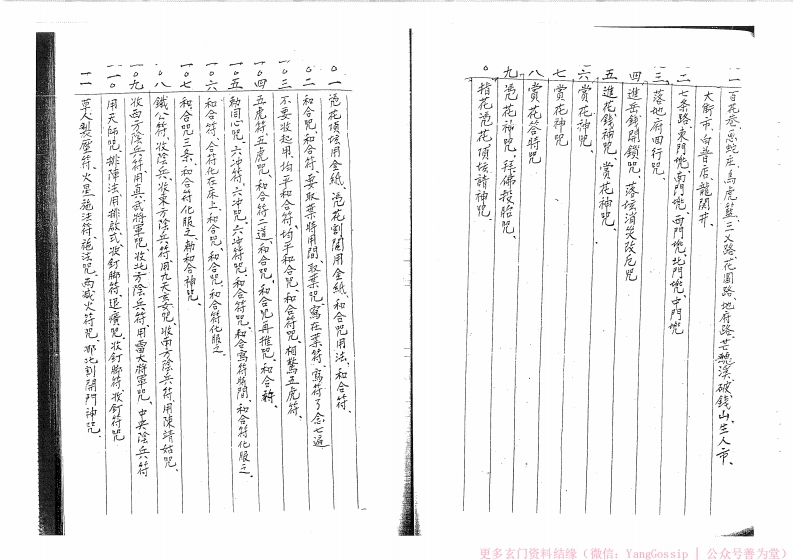 一一 百花巷、悪蛇庄、馬虎籃、三义路、花園路、地府路、芒麺溪、破錢山、生人市、
大街市、白普店、龍関井、
二 七条路、東門兠、南門兠、西門兠、北門兠、中門兠
三 落地府回行咒、
四 進岳錢開鎖咒、落坛消災改厄咒
五 進花錢神咒、賞花神咒、
六 賞花神咒、
七 賞花神咒
八 賞花答時咒
九 湸花神咒、拜佛投胎咒、
一〇 指花湸花頂坛請神咒、
一〇一 湸花頂坛用金紙、湸花割鬮用金紙、和合咒用法、和合符、
一〇二 和合咒、和合符、要取葉將用間取葉咒、寫在葉符、寫符了念七遍
一〇三 不要收起用、均平和合符、均平和合符咒、和合符咒、相驚五虎符、
一〇四 五虎符、五虎咒、和合符二道、和合咒、和合咒再推咒、和合符、
一〇五 動间心咒、六冲符、六冲咒、六冲符咒、和合寫符暁間、和合符化服之、
一〇六 和合符、合符化在床上、和合咒、和合咒、和合符化服之、
一〇七 和合咒三条、和合符化服之、聯和合神咒、
一〇八 鐵公符、收陰兵、收東方陰兵符、用九天玄女咒、收南方陰兵符、用陳靖姑咒、
一〇九 收西方陰兵符、用真武將軍咒、收北方陰兵符、用雷大將軍咒、中央陰兵符
一一〇 用天師咒、排陣法用、排啟式、收釘脚符、退癀咒、收釘脚符、收釘符咒
一一一 草人製壓符、火星施法符、施法咒、丙滅火符咒、鄁北割開門神咒、
更多玄门资料结缘（微信：YangGossip | 公众号善为堂）